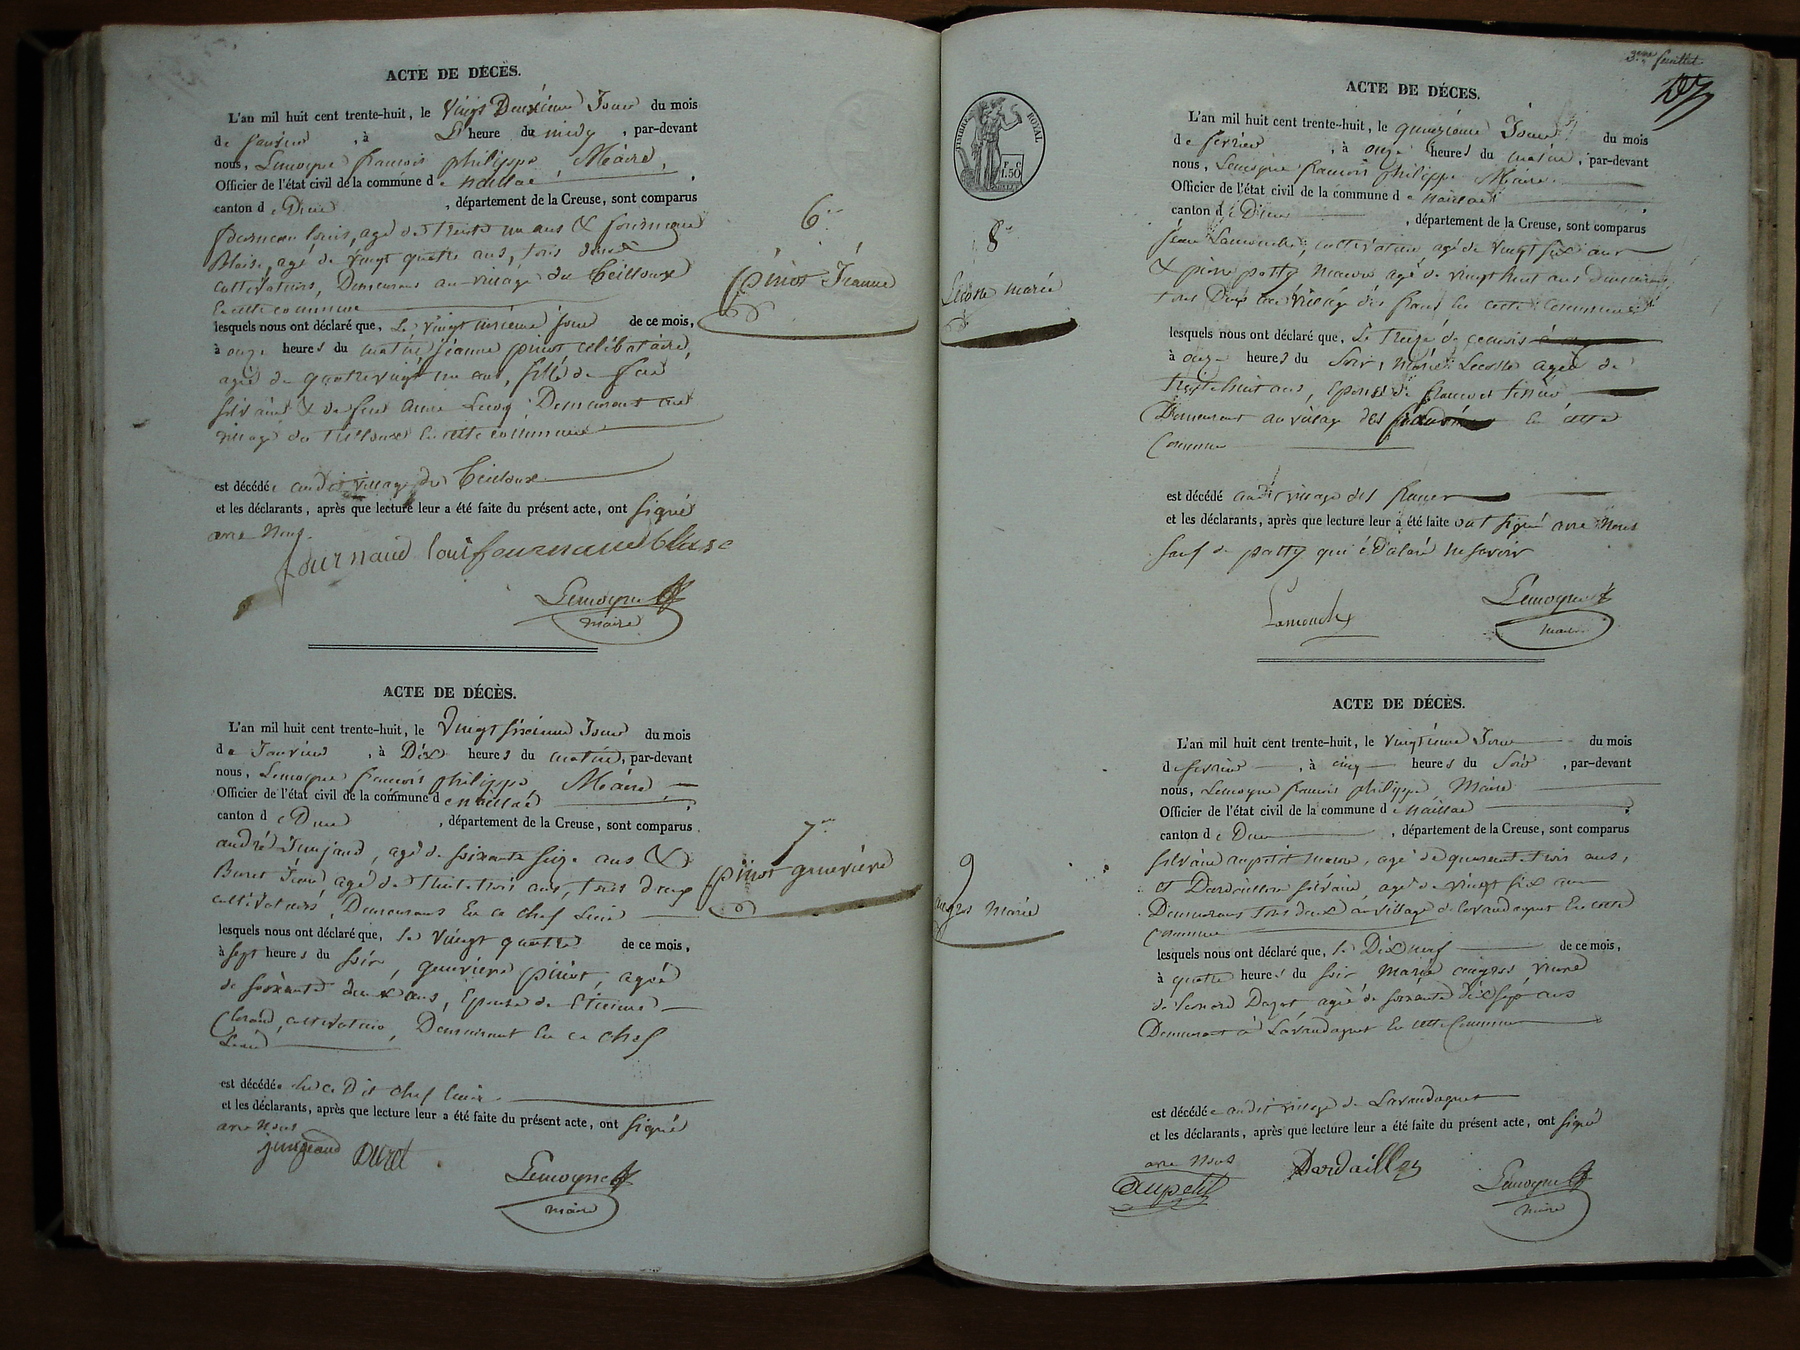 ACTE DE DÉCÈS.
L'an mil huit cent trente-huit, le vingt Deuxieme Jour du mois
de Janvier, à L' heure du midy, par-devant
nous, Lemoyne françois philippe Maire,
Officier de l'état civil de la commune de naillac
canton de Dun, département de la Creuse, sont comparus
louis, agé de trente un ans &
Blaise, agé de vingt quatre ans, tous deux
cultivateurs, Demeurans au village du Teilloux
En cette commune
lesquels nous ont déclaré que, Le vingt unieme jour de ce mois,
à onze heures du matin jeanne pinot célibataire,
agée de quatrevingt un ans, fille de feu
silvain & de feue anne Demeurant au
village du Teilloux En cette commune
est décédée audit village du Teilloux
et les déclarants, après que lecture leur a été faite du présent acte, ont signé
avec Nous.
fournaud louis fournaud blaise
Lemoyne
maire
6
pinot Jeanne
ACTE DE DÉCÈS.
L'an mil huit cent trente-huit, le vingt sixieme Jour du mois
de Janvier, à Dix heures du matin, par-devant
nous, Lemoyne françois philippe Maire,
Officier de l'état civil de la commune de naillac
canton de Dun, département de la Creuse, sont comparus
andré Junjaud, agé de soixante seize ans &
Duret agé de trente trois ans, tous deux
cultivateurs, Demeurans En ce chef Lieu
lesquels nous ont déclaré que, le vingt quatre de ce mois,
à sept heures du soir, genevieve pinot, agée
de soixante deux ans, Epouse de Etienne
cultivateur, Demeurant En ce chef
Lieu
est décédée En ce Dit chef lieu
et les déclarants, après que lecture leur a été faite du présent acte, ont signé
avec Nous
junjeaud Duret
Lemoyne
maire
7
pinot genevieve
3eme feuillet
TIMBRE ROYAL
F. C.
1.50
ACTE DE DÉCES.
L'an mil huit cent trente-huit, le quinzieme Jour du mois
de fevrier, à onze heures du matin, par-devant
nous, Lemoyne françois philippe Maire
Officier de l'état civil de la commune de naillac
canton de Dun, département de la Creuse, sont comparus
jean Lamouche, cultivateur agé de vingt six ans
& pierre patty macon agé de vingt huit ans demeurans
tous Deux au village des frans en cette commune
lesquels nous ont déclaré que, Le treize de ce mois
à onze heures du soir, Marie Lecosse agée de
trente huit ans, Epouse de francois
Demeurant au village des en cette
Commune
est décédé audit village des
et les déclarants, après que lecture leur a été faite ont signé avec Nous
sauf de patty qui a Déclaré ne savoir
Lamouche
Lemoyne
maire
8
Lecosse marie
ACTE DE DÉCÈS.
L'an mil huit cent trente-huit, le vingtieme Jour du mois
de fevrier, à cinq heures du soir, par-devant
nous, Lemoyne françois philippe Maire
Officier de l'état civil de la commune de Naillac
canton de Dun, département de la Creuse, sont comparus
silvain aupetit macon, agé de quarante trois ans,
et Dardaillon silvain, agé de vingt six ans
Demeurans tous deux au village de lavaudaguet En cette
Commune
lesquels nous ont déclaré que, le Dix neuf de ce mois,
à quatre heures du soir Marie veuve
de leonard agée de soixante dix sept ans
Demeurant à Lavaudaguet En cette Commune
est décédée audit village de Lavaudaguet
et les déclarants, après que lecture leur a été faite du présent acte, ont signé
avec Nous
aupetit Dardaillon
Lemoyne
maire
9
Marie